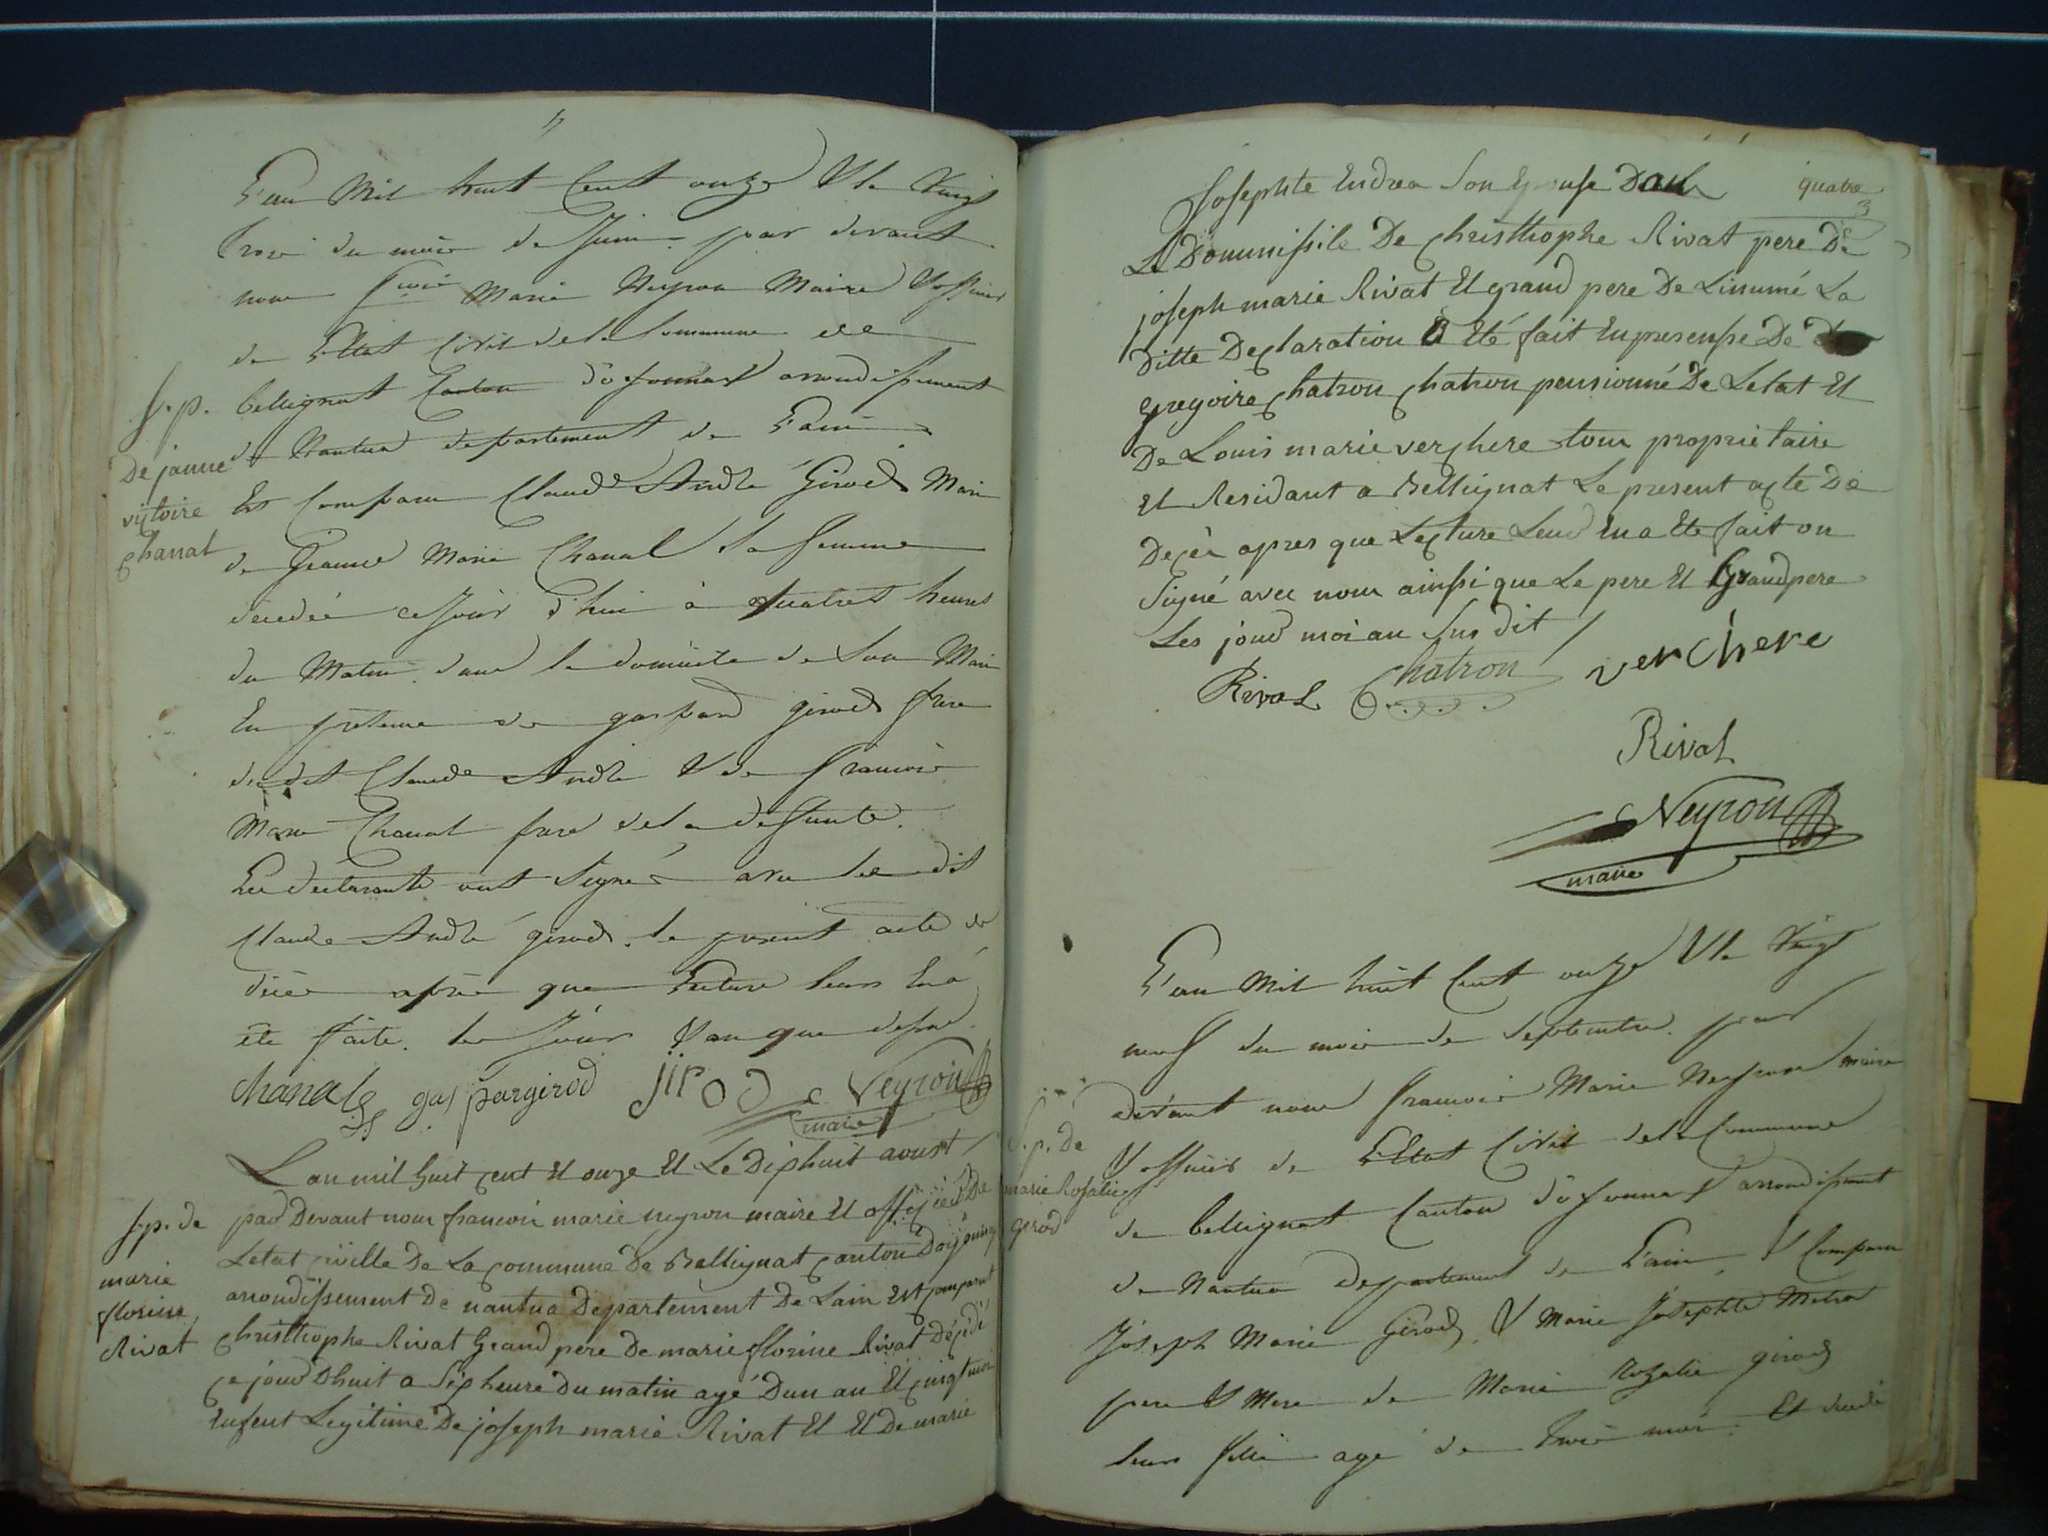 L'an Mil huit Cent onze & le Vingt
trois du mois de Juin par devant
nous Marie Neyron Maire & officier
de l'Etat Civil de la Commune de
bellignat Canton d'oyonnax arrondissement
de Nantua departement de l'ain
Est Comparu Claude André Girod Mari
de Jeanne Marie Chanal Sa femme
decedée ce Jour d'hui à quatres heures
du Matin dans le domicile de Son Mari
En présence de gaspard girod frere
du dit Claude André & de francois
Marie Chanal frere de la defunte.
Les déclarants ont Signés avec le dit
Claude André girod. le present acte de
décès après que Lecture leurs En a
été faite. les Jour & an que dessus.
chanal gaspargirod jirod Neyron
maire
S.p.
De janne
victoire
chanal
L an mil huit cent et onze et Le Dix huit aoust
par Devant nous francoi marie neyron maire et officier De
Letat civille De La commune De Bellignat canton
arrondissement De nantua Departement De Lain Est comparut
christhophe Rivat Grand pere De marie florine Rivat Décédé
ce jour Dhuit a Six heure Du matin agé Dun an Et cinqt moi
Enfent Legitime De joseph marie Rivat Et Et De marie
S.p. de
marie
florine
Rivat
quatre
3
Josephte Endrea Son Epouse Dans
Le Dommissile De christhophe Rivat pere De
joseph marie Rivat Et grand pere De Linumé La
Ditte Declaration A Eté fait En presensse De
gregoire chatron chatron pensionné De Letat Et
De Louis marie verchere tous proprietaire
Et Residant a Bellignat Le present acte De
Decèr apres que Lecture Leur En a Ete fait on
Signé avec nous ainssi que Le pere Et Grand pere
Les jour moi an Sus dit
Rivat Chatron verchere
Rivat
Neyron
maire
L'an Mil huit Cent onze & le Vingt
neuf du mois de Septembre. par
devant nous francois Marie Neyron maire
& officier de l'Etat Civil de la Commune
de bellignat Canton d'oyonnax arrondissement
de Nantua departement de l'ain, & Comparu
Joseph Marie Girod, & Marie Josephte
pere & Mere de Marie Rozalie girod
leurs fille agé de trois mois. Et decedé
S.p. De
marie Rosalie
Girod